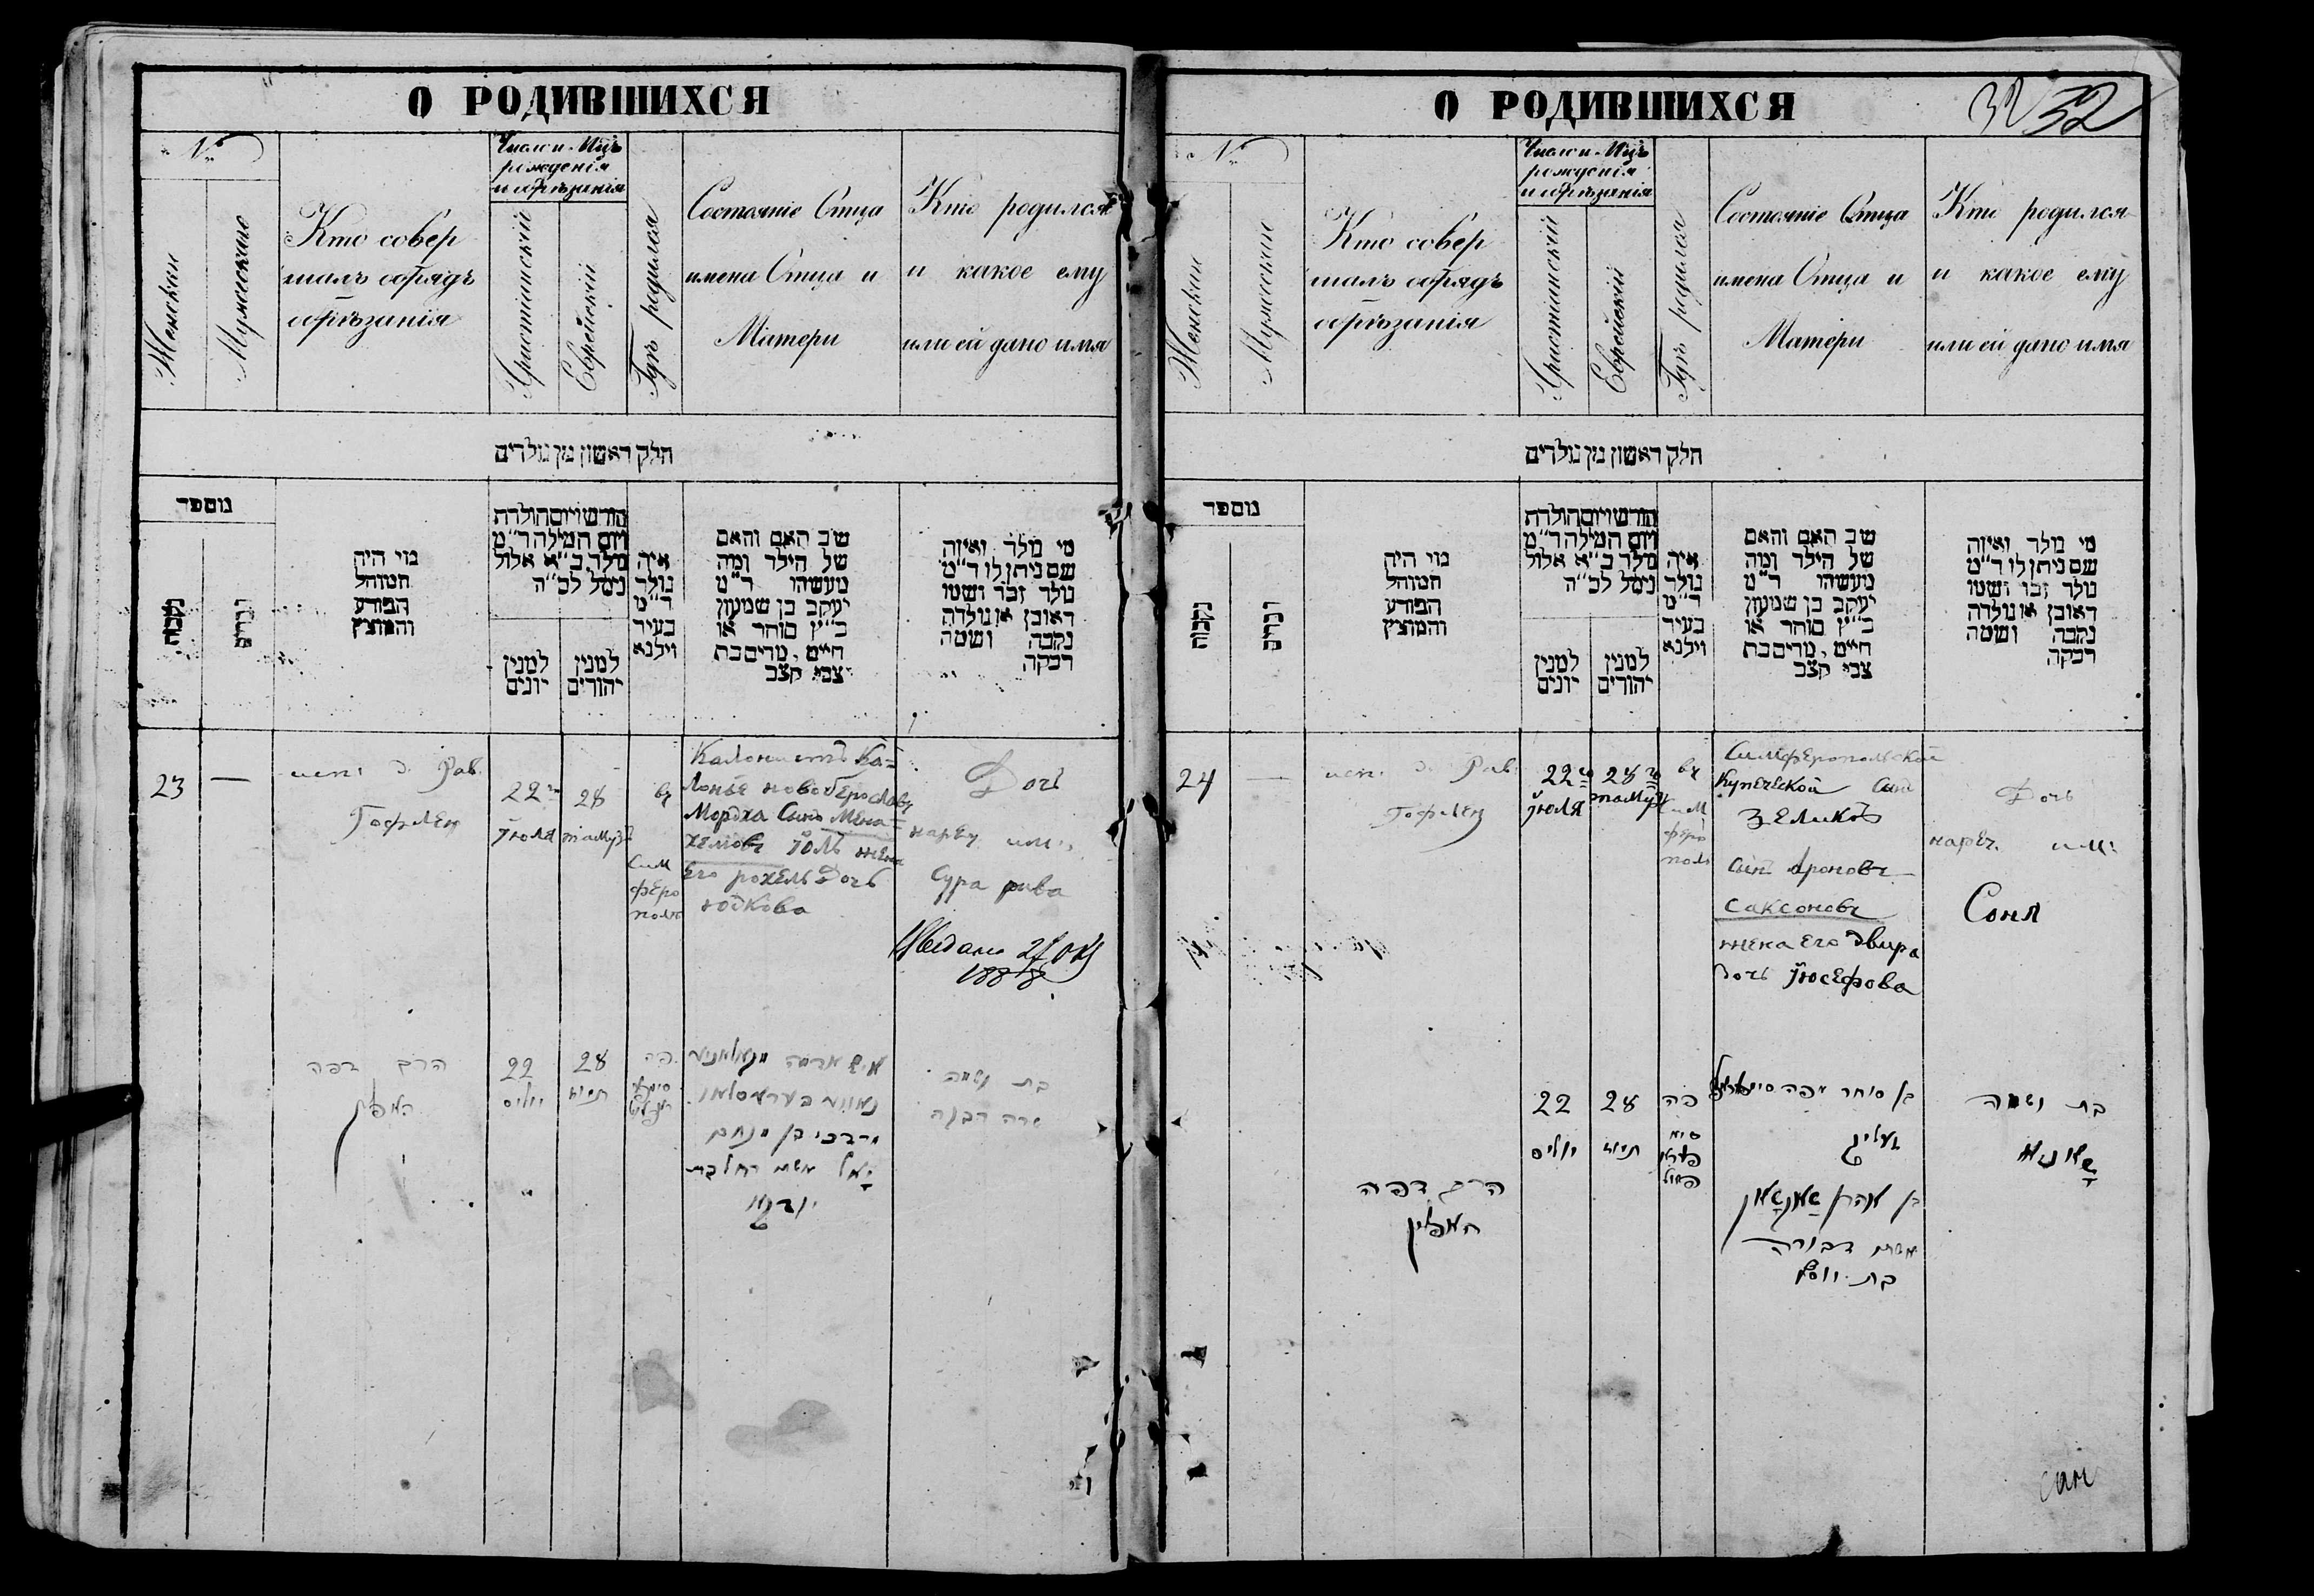 О РОДИВШИХСЯ
№
Женскии
Мужескаго
Кто совер
шалъ обрядъ
обрѣзанія
Число и Мцъ
рожденія
и обрѣзанія
Христіанскій
Еврейскій
Гдѣ родился
Состояніе Отца
имена Отца и
Матери
Кто родился
и какое ему
или ей дано имя
חלק ראשון מן נולדים
מספר
נקבות
זכרים
מי היה
המוהל
הפורע
והמוצץ
חודש ויום הולדת
ויום המילה ר״מ
נולד ב״א אלול
נימל לכ״ה
למנין
יונים
למנין
יהודים
איה
נולד
ר״מ
בעיר
וילנא
שב האם והאם
של הילד ומה
מעשהו ר״מ
יעקב בן שמעון
כ״ץ סוחר או
חייט, מרים בת
צבי קצב
מי מלד ואיזה
שם ניתן לו ר״מ
נולד זכר ושמו
ראובן או נולדה
נקבה ושמה
רבקה
23
—
исп. д. Рав.
Гофмен
22го
Іюля
28
тамуз
въ
Сим
феро
полѣ
Калонистъ Ка=
лоніе новоберославъ
Мордха Сынъ Мена=
хемовъ Іолъ жена
Его рохель Дочь
юдкова
Дочь
нареч. им.
Сура рива
1888
22
יוליס
28
תמוז
פה
בת ושמה
שרה רבקה
מרדכי בן מנחם
אשתו רחל בת
О РОДИВШИХСЯ
32
№
Женскии
Мужескии
Кто совер
шалъ обрядъ
обрѣзанія
Число и Мцъ
рожденія
и обрѣзанія
Христіанскій
Еврейскій
Гдѣ родился
Состояніе Отца
имена Отца и
Матери
Кто родился
и какое ему
или ей дано имя
חלק ראשון מן נולדים
מספר
נקבות
זכרים
מי היה
המוהל
הפורע
והמוצץ
חודש ויום הולדת
ויום המילה ר״מ
נולד ב״א אלול
נימל לכ״ה
למנין
יונים
למנין
יהודים
איה
נולד
ר״מ
בעיר
וילנא
שב האם והאם
של הילד ומה
מעשהו ר״מ
יעקב בן שמעון
כ״ץ סוחר או
חייט, מרים בת
צבי קצב
מי מלד ואיזה
שם ניתן לו ר״מ
נולד זכר ושמו
ראובן או נולדה
נקבה ושמה
רבקה
24
—
исп. д. Рав.
Гофмен
22го
Іюля
28го
тамуз
въ
Сим
феро
полѣ
Симферопольской
Купеческой Сынъ
Зеликъ
Сынъ Ароновъ
Саксоновъ
жена Его Двира
дочь Іюсефова
Дочь
нареч. им.
Соня
22
יוליס
28
תמוז
פה
בן סוחר
זעליג
בן אהרן
אשתו דבורה
בת יוסף
בת ושמה
סאניא